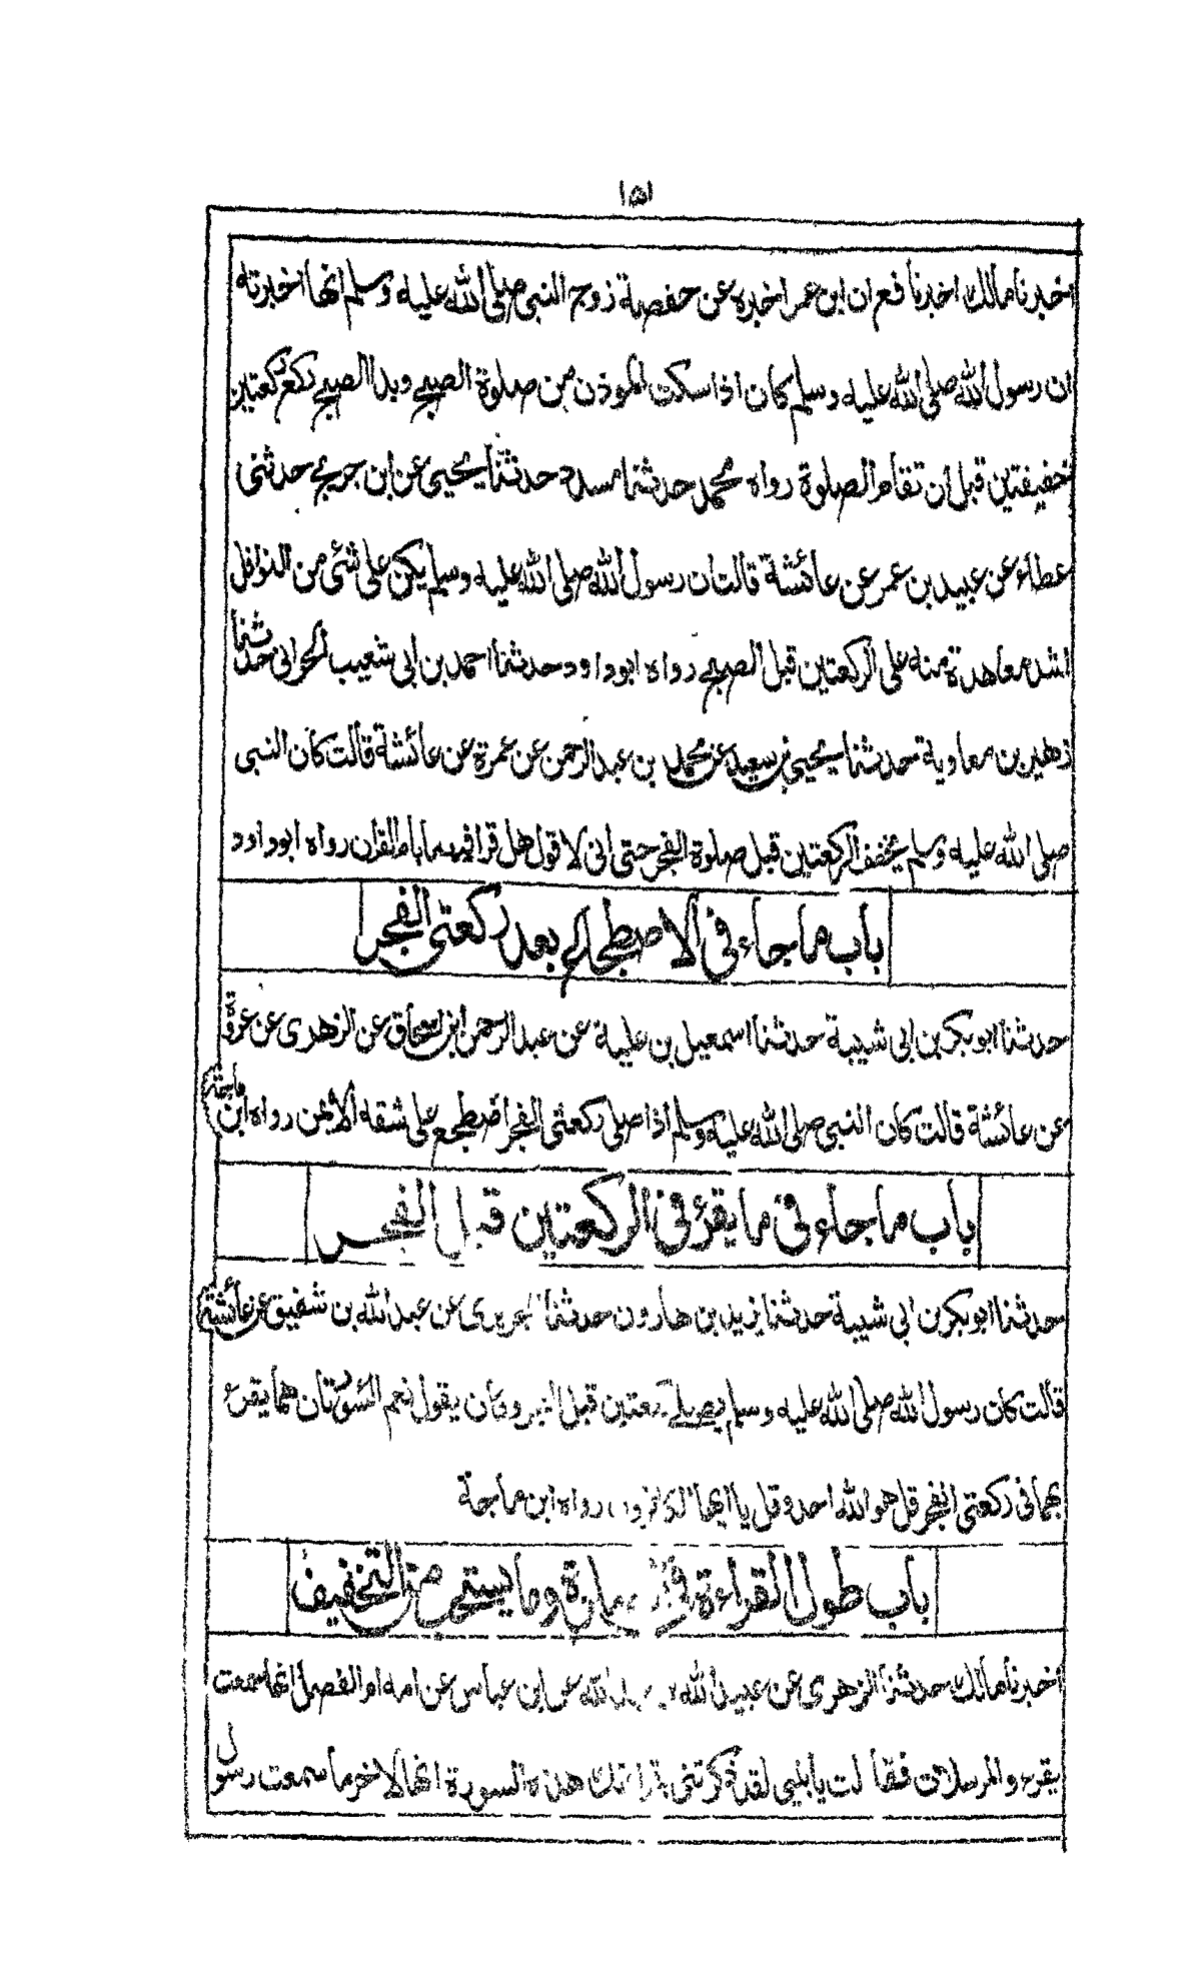 ١٥١
اخبرنا مالك اخبرنا فع ان ابن عمر اخبره عن حفصة زوج النبي صلى الله عليه وسلم انها اخبرته
ان رسول الله صلى الله عليه وسلم كان اذا سكت المؤذن من صلوة الصبح وبدا الصبح ركع ركعتين
خفيفتين قبل ان تقام الصلوة رواه محمد حدثنا مسدد حدثنا يحيى عن ابن جريج حدثنى
عطاء عن عبيد بن عمر عن عائشة قالت ان رسول الله صلى الله عليه وسلم يكن على شئ من النوافل
اشد معاهدة منه على الركعتين قبل الصبح رواه ابوداود حدثنا احمد بن ابى شعيب الحرانى حدثنا
زهير بن معاوية حدثنا يحيى بن سعيد عن محمد بن عبد الرحمن عن عمرة عن عائشة قالت كان النبى
صلى الله عليه وسلم يخفف الركعتين قبل صلوة الفجر حتى انى لاقول هل قرا فيهما بام القران رواه ابوداود
باب ما جاء فى الاضطجاع بعد ركعتى الفجر
حدثنا ابوبكر بن ابى شيبة حدثنا اسمعيل بن علية عن عبد الرحمن ابن اسحاق عن الزهرى عن عروة
عن عائشة قالت كان النبى صلى الله عليه وسلم اذا صلى ركعتى الفجر اضطجع على شقه الايمن رواه ابن ماجة
باب ما جاء فى ما يقرؤ فى الركعتين قبل الفجر
حدثنا ابوبكر بن ابى شيبة حدثنا يزيد بن هارون حدثنا الجريرى عن عبد الله بن شفيق عن عائشة
قالت كان رسول الله صلى الله عليه وسلم يصلى ركعتين قبل الفجر وكان يقول نعم السورتان هما يقرء
بهما فى ركعتى الفجر قل هو الله احد وقل يا ايها الكافرون رواه ابن ماجة
باب طول القراءة فى الصلوة وما يستحب من التخفيف
اخبرنا مالك حدثنا الزهرى عن عبيد الله بن عبد الله عن ابن عباس عن امه ام الفضل انها سمعت
يقرء والمرسلات فقالت يا بنيى لقد ذكرتنى بقراءتك هذه السورة انها لاخر ما سمعت رسول